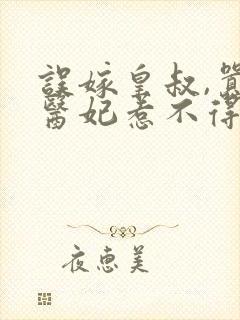 誤嫁皇叔,嚣
醫妃惹不得
夜惠美